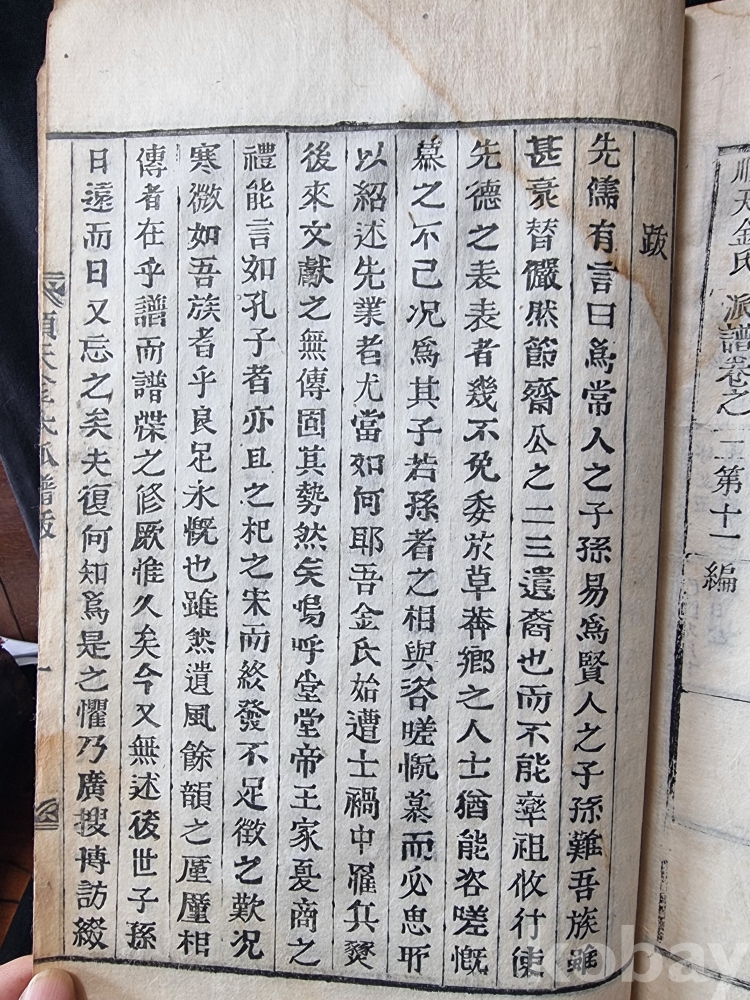 順天金氏派譜卷之二第十一編
跋
先儒有言曰爲常人之子孫易爲賢人之子孫難吾族雖
甚衰替儼然節齋公之二三遺裔也而不能率祖攸行使
先德之表表者幾不免委於草莽鄉之人士猶能咨嗟慨
慕之不已况爲其子若孫者之相與咨嗟慨慕而必思所
以紹述先業者尤當如何耶吾金氏始遭士禍中罹兵燹
後來文獻之無傳固其勢然矣嗚呼堂堂帝王家夏商之
禮能言如孔子者亦且之杞之宋而終發不足徵之歎况
寒微如吾族者乎良足永慨也雖然遺風餘韻之厪厪相
傳者在乎譜而譜牒之修厥惟久矣今又無述後世子孫
日遠而日又忘之矣夫復何知爲是之懼乃廣搜博訪綴
順天金氏派譜跋
一
kobay